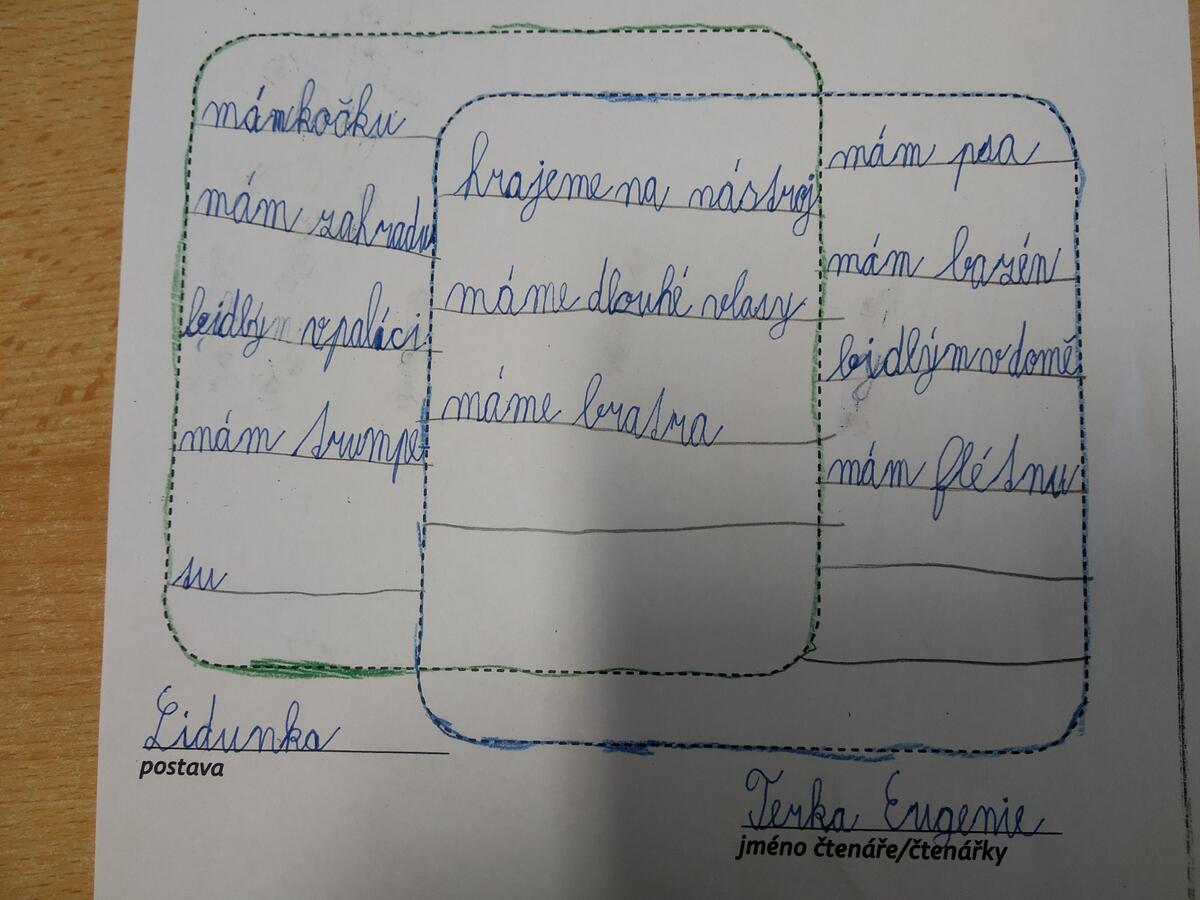 mám kočku
mám zahradu
bidlým v paláci
mám trumpe
tu
hrajeme na nástroj
máme dlouhé vlasy
máme bratra
mám psa
mám bazén
bidlým v domě
mám flétnu
Lidunka
postava
Terka Eugenie
jméno čtenáře/čtenářky